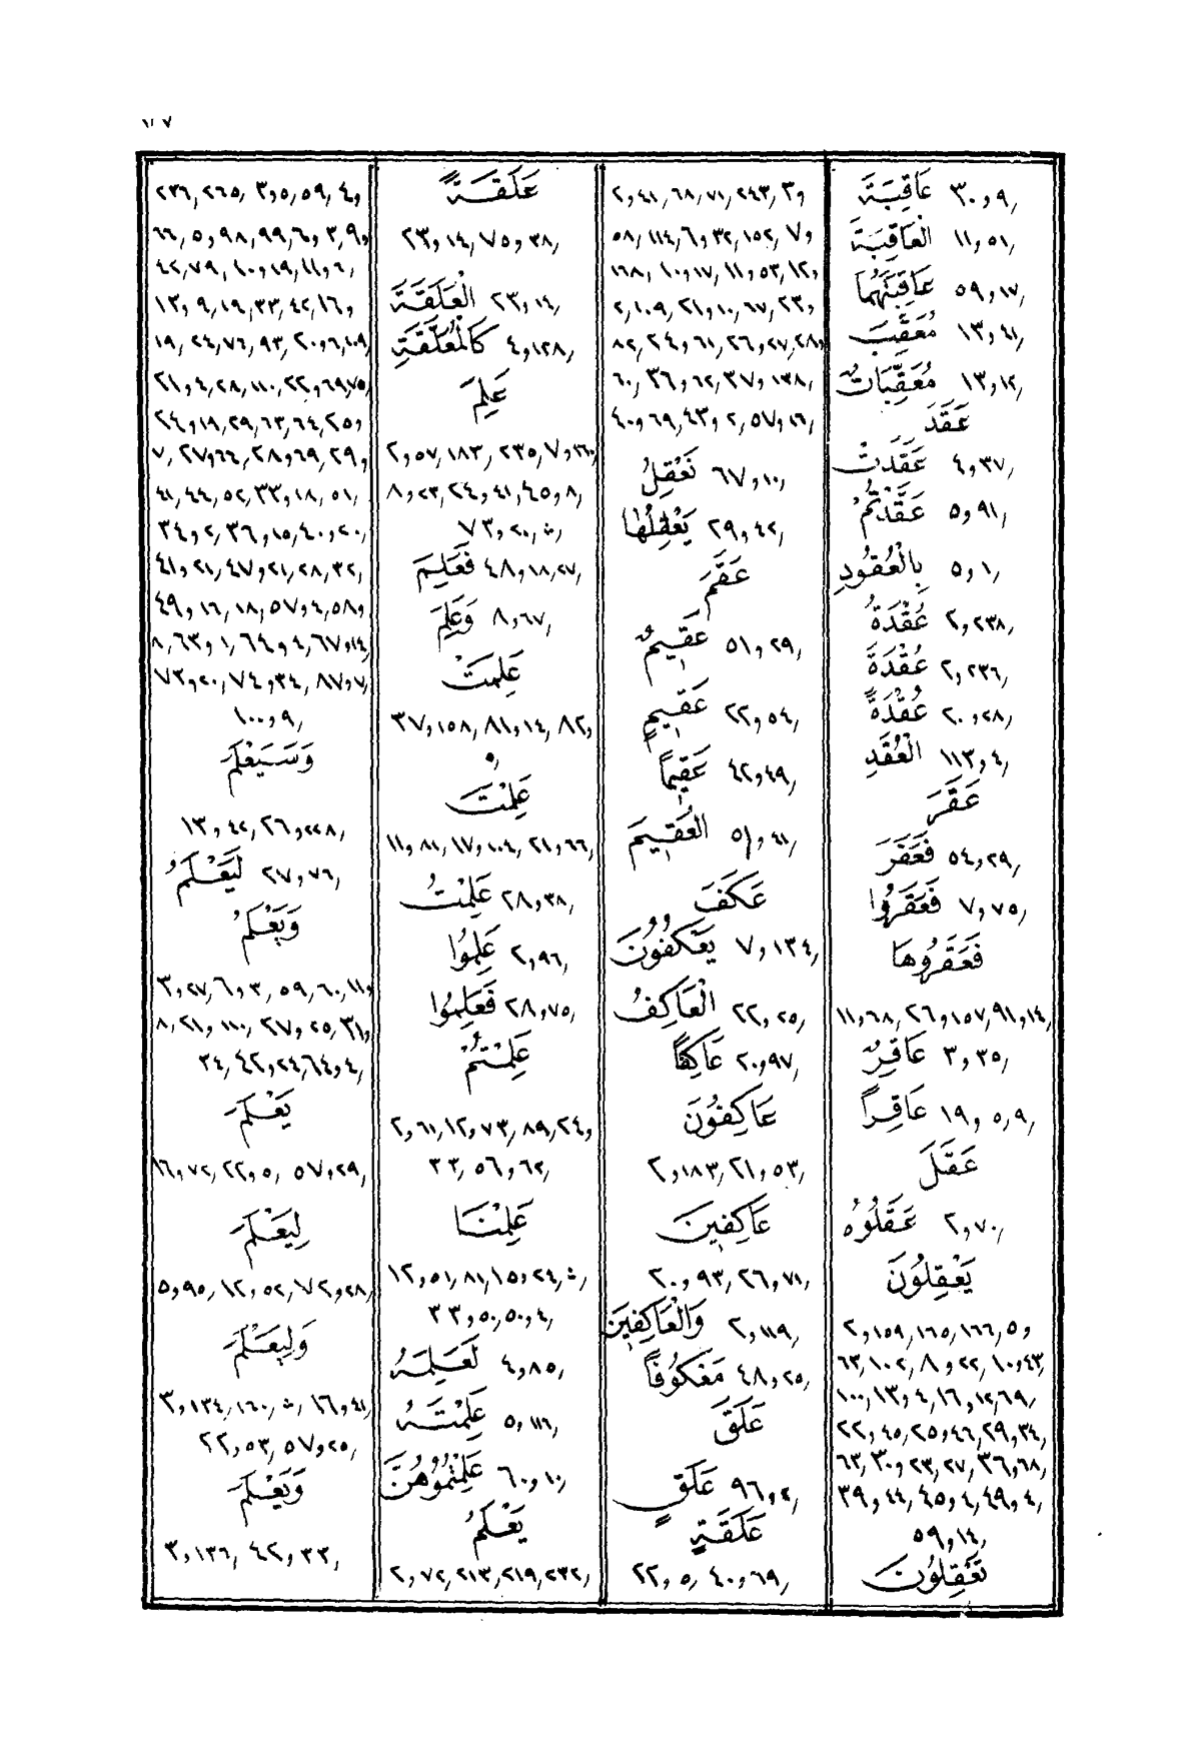 ١٠٧
عَاقِبَةَ ٣٠و٩,
الْعَاقِبَةَ ١١و٥١,
عَاقِبَتَهُمَا ٥٩و١٧,
مُعَقِّبَ ١٣و٤١,
مُعَقِّبَاتٌ ١٣و١٢,
عَقَدَ
عَقَدَتْ ٤و٣٧,
عَقَّدْتُمُ ٥و٩١,
بِالْعُقُودِ ٥و١,
عُقْدَةُ ٢و٢٣٨,
عُقْدَةَ ٢و٢٣٦,
عُقْدَةً ٢٠و٢٨,
الْعُقَدِ ١١٣و٤,
عَقَرَ
فَعَقَرَ ٥٤و٢٩,
فَعَقَرُوا ٧و٧٥,
فَعَقَرُوهَا
١١و٦٨, ٢٦و١٥٧, ٩١و١٤,
عَاقِرٌ ٣و٣٥,
عَاقِرًا ١٩و٥,٩,
عَقَلَ
عَقَلُوهُ ٢و٧٠,
يَعْقِلُونَ
٢و١٥٩,١٦٥,١٦٦, ٥و
٦٣,١٠٢, ٨و٢٢, ١٠و٤٣,
١٠٠, ١٣و٤, ١٦و١٢,٦٩,
٢٢و٤٥, ٢٥و٤٦, ٢٩و٣٤,
٦٣, ٣٠و٢٣,٢٧, ٣٦و٦٨,
٣٩و٤٤, ٤٥و٤, ٤٩و٤,
٥٩و١٤,
تَعْقِلُونَ
٢و٤١,٦٨,٧١,٢٤٣, ٣و
٥٨,١١٤, ٦و٣٢,١٥٢, ٧و
١٦٨, ١٠و١٧, ١١و٥٣, ١٢و
٢,١٠٩, ٢١و١٠,٦٧, ٢٣و
٨٢, ٢٤و٦١, ٢٦و٢٧, ٢٨و
٦٠, ٣٦و٦٢, ٣٧و١٣٨,
٤٠و٦٩, ٤٣و٢, ٥٧و١٦,
نَعْقِلُ ٦٧و١٠,
يَعْقِلُهَا ٢٩و٤٢,
عَقَمَ
عَقِيمٌ ٥١و٢٩,
عَقِيمٍ ٢٢و٥٤,
عَقِيمًا ٤٢و٤٩,
الْعَقِيمَ ٥١و٤١,
عَكَفَ
يَعْكُفُونَ ٧و١٣٤,
الْعَاكِفُ ٢٢و٢٥,
عَاكِفًا ٢٠و٩٧,
عَاكِفُونَ
٢و١٨٣, ٢١و٥٣,
عَاكِفِينَ
٢٠و٩٣, ٢٦و٧١,
وَالْعَاكِفِينَ ٢و١١٩,
مَعْكُوفًا ٤٨و٢٥,
عَلَقَ
عَلَقٍ ٩٦و٢,
عَلَقَةٍ
٢٢و٥, ٤٠و٦٩,
عَلَقَةً
٢٣و١٤, ٧٥و٣٨,
الْعَلَقَةَ ٢٣و١٤,
كَالْمُعَلَّقَةِ ٤و١٢٨,
عَلِمَ
٢و٥٧,١٨٣, ٢٣٥, ٧و١٦٠,
٨و٢٣, ٢٤و٤١, ٤٥و٨,
٧٣و٢٠,ث,
فَعَلِمَ ٤٨و١٨,٢٧,
وَعَلِمَ ٨و٦٧,
عَلِمَتْ
٣٧و١٥٨, ٨١و١٤, ٨٢و
٥,
عَلِمْتَ
١١و٨١, ١٧و١٠٤, ٢١و٦٦,
عَلِمْتُ ٢٨و٣٨,
عَلِمُوا ٢و٩٦,
فَعَلِمُوا ٢٨و٧٥,
عَلِمْتُمْ
٢و٦١, ١٢و٧٣,٨٩, ٢٤و
٣٣, ٥٦و٦٢,
عَلِمْنَا
١٢و٥١,٨١, ١٥و٢٤,ث,
٣٣و٥٠, ٥٠و٤,
لَعَلِمَهُ ٤و٨٥,
عَلِمْتَهُ ٥و١١٦,
عَلِمْتُمُوهُنَّ ٦٠و١٠,
يَعْلَمُ
٢و٧٢,٢١٣,٢١٩,٢٣٢,
٢٣٦, ٢٦٥, ٣و٥,٥٩, ٤و
٦٦, ٥و٩٨,٩٩, ٦و٣,٥٩,
٤٢,٧٩, ١٠و١٩, ١١و٦,
١٣و٩,١٩,٣٣,٤٢, ١٦و
١٩, ٢٤,٧٦,٩٣, ٢٠و٦,١٠٩,
٢١و٤,٢٨,١١٠, ٢٢و٦٩,٧٥,
٢٤و١٩,٢٩,٦٣,٦٤, ٢٥و
٧, ٢٧و٦٦, ٢٨و٦٩, ٢٩و
٤١,٤٤,٥٢, ٣٣و١٨,٥١,
٣٤و٢, ٣٦و١٥, ٤٠و٢٠,
٤١و٢١, ٤٧و٢١,٢٨,٣٢,
٤٩و١٦,١٨, ٥٧و٤, ٥٨و
٨, ٦٣و١, ٦٤و٤, ٦٧و١٤,
٧٣و٢٠, ٧٤و٣٤, ٨٧و٧,
١٠٠و٩,
وَسَيَعْلَمَ
١٣و٤٢, ٢٦و٢٢٨,
لَيَعْلَمُ ٢٧و٧٦,
وَيَعْلَمُ
٣و٢٧, ٦و٣,٥٩,٦٠, ١١و
٨, ٢١و١١٠, ٢٧و٢٥, ٣١و
٣٤, ٤٢و٢٤, ٦٤و٤,
يَعْلَمَ
١٦و٧٢, ٢٢و٥, ٥٧و٢٩,
لِيَعْلَمَ
٥و٩٥, ١٢و٥٢, ٧٢و٢٨,
وَلِيَعْلَمَ
٣و١٣٤,١٦٠,ث, ١٦و٤١,
٢٢و٥٣, ٥٧و٢٥,
وَيَعْلَمَ
٣و١٣٦, ٤٢و٣٣,